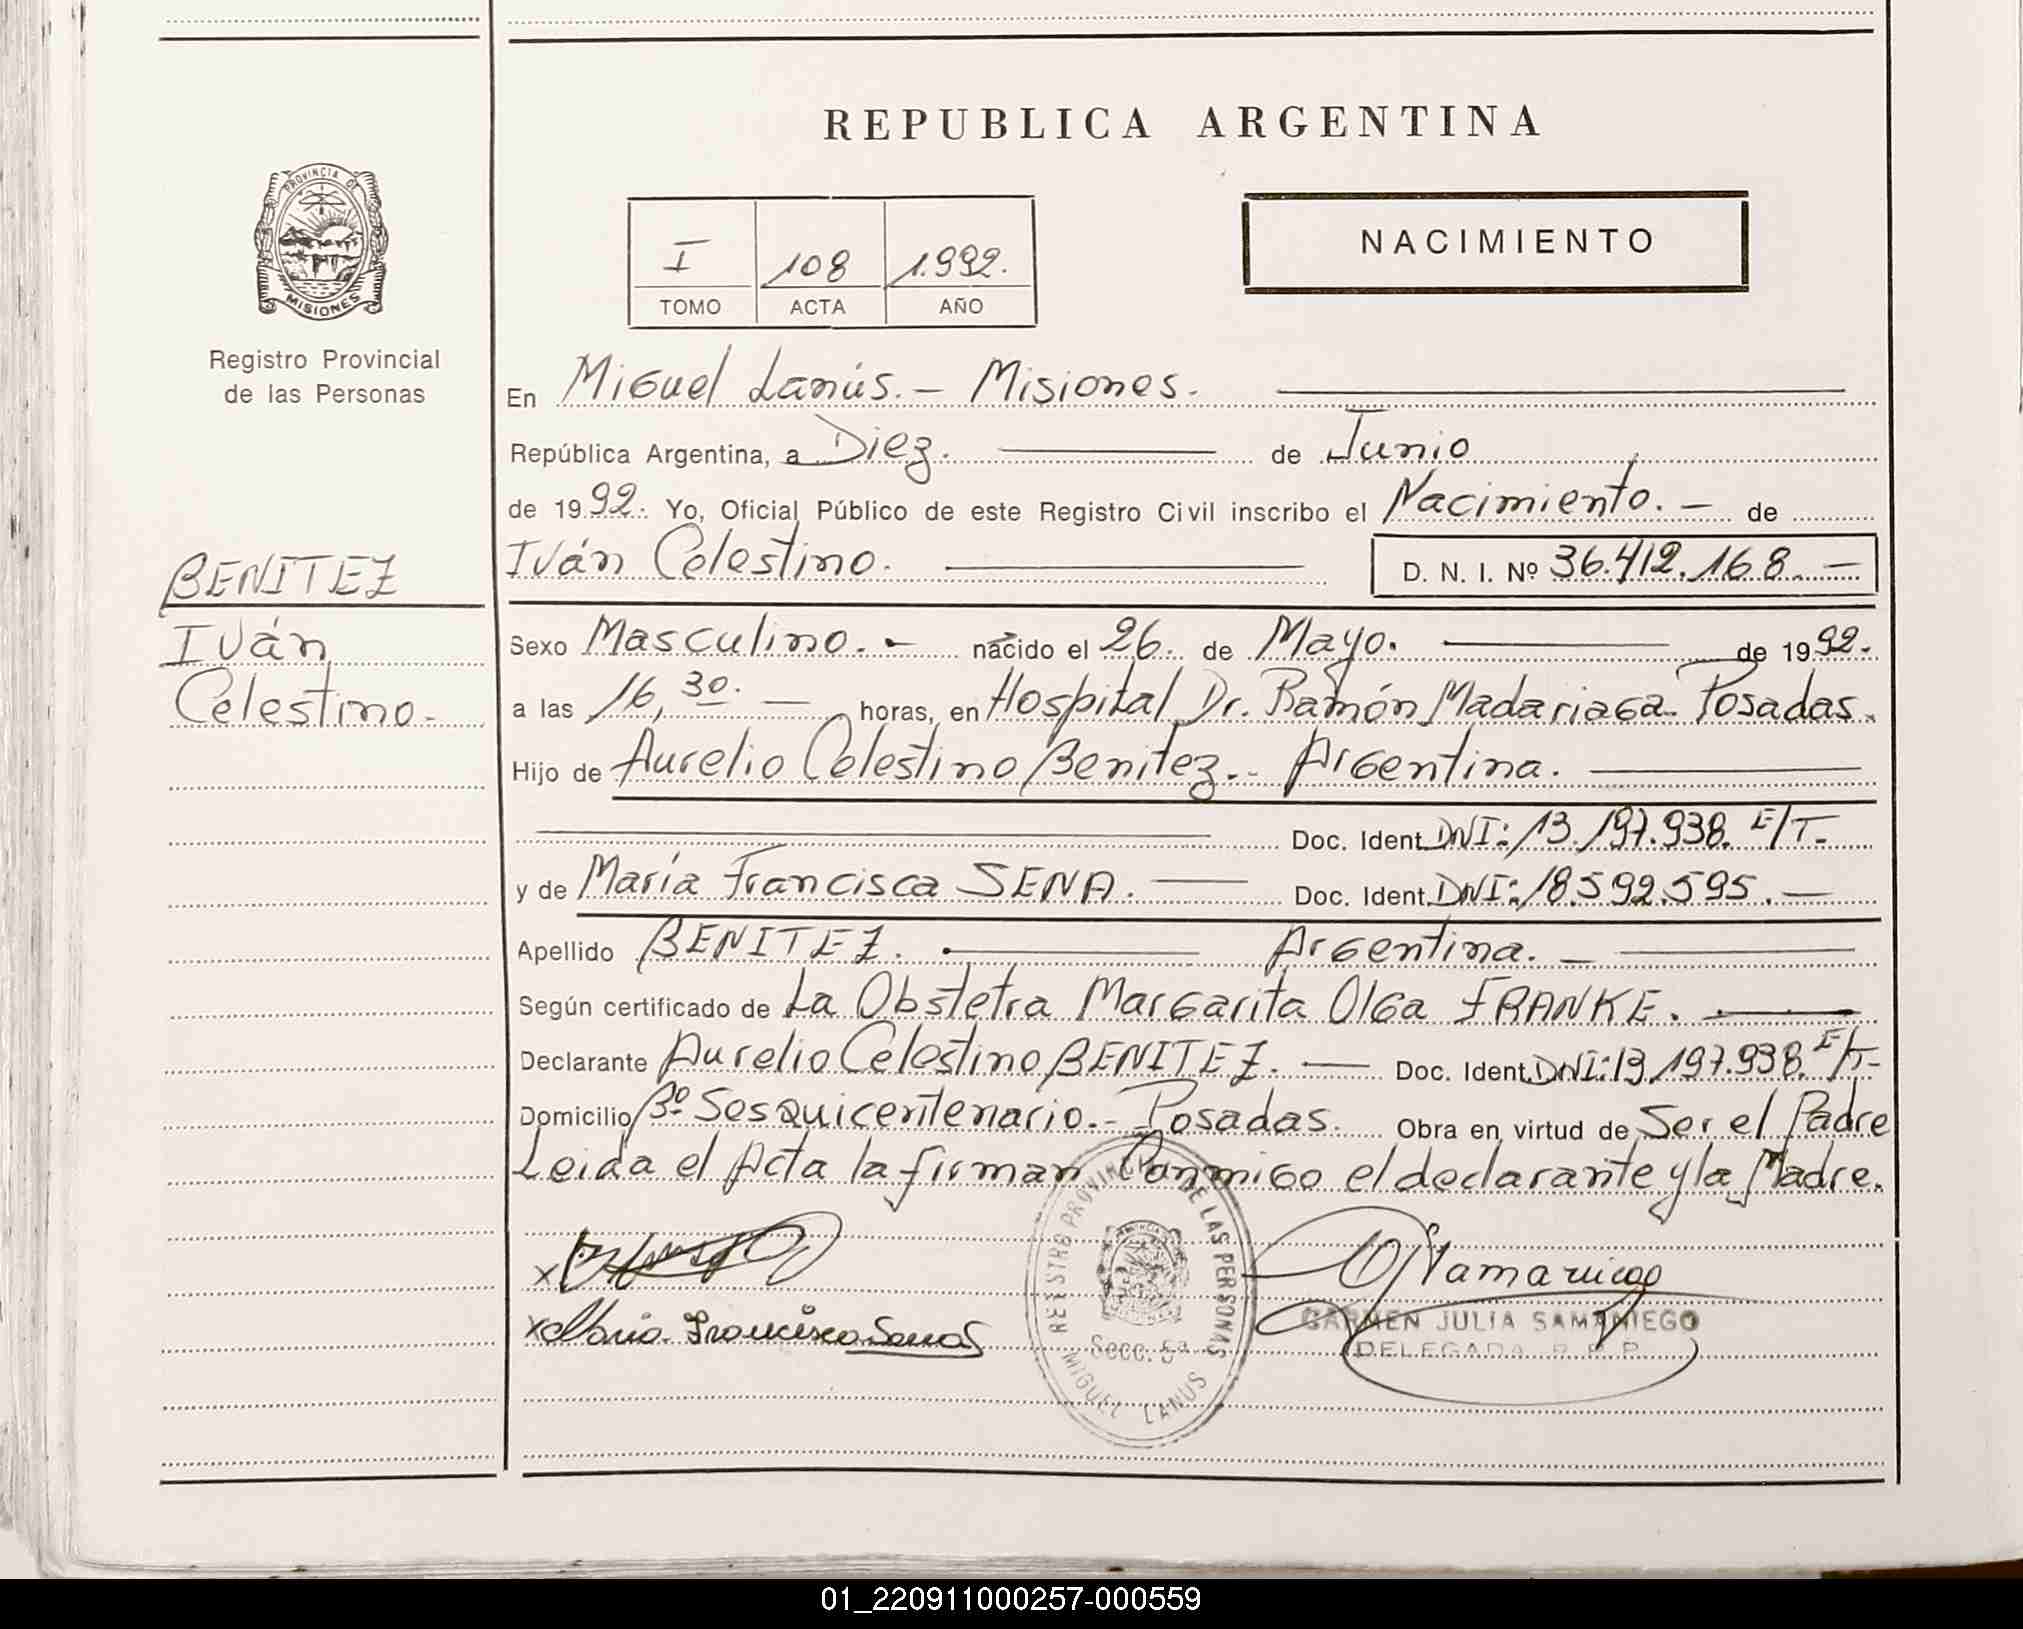 REPUBLICA ARGENTINA
PROVINCIA DE
MISIONES
Registro Provincial
de las Personas
I 108 1.992.
TOMO ACTA AÑO
NACIMIENTO
En Miguel Lanús. - Misiones.
República Argentina, a Diez. de Junio
de 1992. Yo, Oficial Público de este Registro Civil inscribo el Nacimiento. - de
Iván Celestino. D. N. I. Nº 36.412.168. -
BENITEZ
Iván
Celestino.
Sexo Masculino. - nacido el 26. de Mayo. de 1992.
a las 16,30. - horas, en Hospital Dr. Ramón Madariaga. Posadas.
Hijo de Aurelio Celestino Benitez. - Argentina.
Doc. Ident. DNI: 13.197.938. E/T.
y de María Francisca SENA. - Doc. Ident. DNI: 18.592.595. -
Apellido BENITEZ. Argentina. -
Según certificado de La Obstetra Margarita Olga FRANKE.
Declarante Aurelio Celestino BENITEZ. - Doc. Ident. DNI: 13.197.938. E/T.
Domicilio Bº Sesquicentenario. - Posadas. Obra en virtud de Ser el Padre
Leida el Acta la firman Conmigo el declarante y la Madre.
REGISTRO PROVINCIAL DE LAS PERSONAS
Secc. 5ª
MIGUEL LANUS
x
x Maria Francisca Sena
CARMEN JULIA SAMANIEGO
DELEGADA R.P.P.
01_220911000257-000559